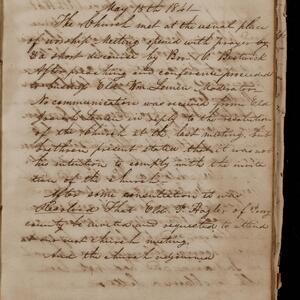 May 15th 1841
The Church met at the usual place
of worship. Meeting opened with prayer by
& a short discourse by Bro. W. Bostwick
After preaching and conference proceeded
to business. Eld. Wm Lemen Moderator
No communication was received from Eld
Joseph Lemen in reply to the resolution
of the Church at the last meeting. But
brethren present stated that it was not
his intention to comply with the invita
tion of the church.
After some consultation it was
Resolved That Eld. P. Hagler of
county be invited and requested to attend
at our next church meeting.
And the church adjourned